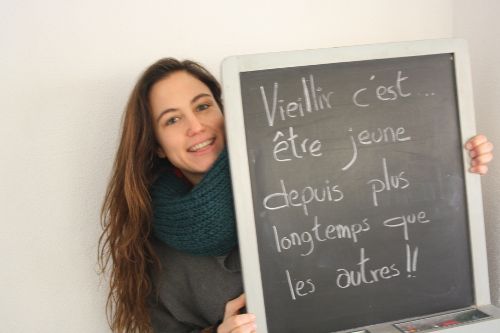 Vieillir c'est...
être jeune
depuis plus
longtemps que
les autres!!